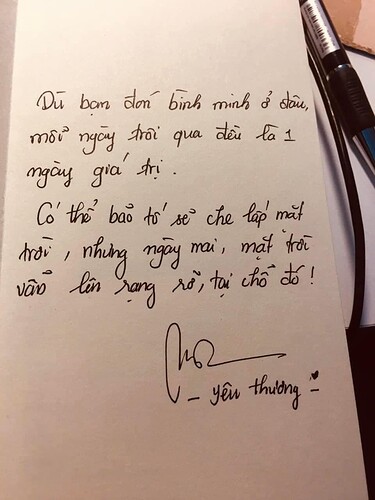 Dù bạn đón bình minh ở đâu,
mỗi ngày trôi qua đều là 1
ngày giá trị.
Có thể bão tố sẽ che lấp mặt
trời, nhưng ngày mai, mặt trời
vẫn lên rạng rỡ, tại chỗ đó!
- yêu thương -